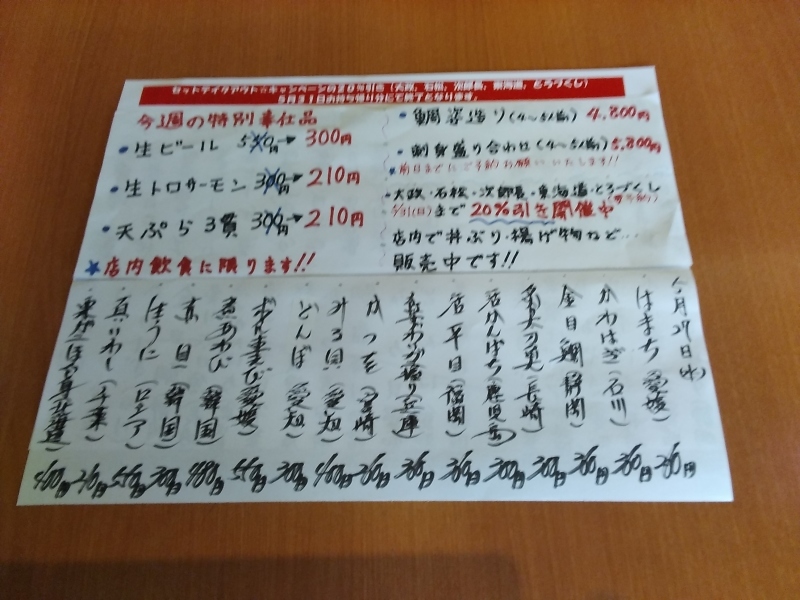 セットテイクアウト☆キャンペーンの20%引き(大政、石松、次郎長、東海道、とろづくし)
5月31日お持ち帰り分にて終了となります。
今週の特別奉仕品
・生ビール 550円→300円
・生トロサーモン 300円→210円
・天ぷら3貫 300円→210円
★店内飲食に限ります!!
・鯛姿造り(4〜5人前) 4,800円
・刺身盛り合わせ(4〜5人前) 5,800円
*前日までにご予約お願いいたします!!
・大政・石松・次郎長・東海道・とろづくし
5/31(日)まで20%引を開催中(要予約)
店内で丼ぶり・揚げ物など…
販売中です!!
月27日(水)
・はまち(愛媛) 260円
・かわはぎ(石川) 260円
・金目鯛(静岡) 260円
(長崎) 300円
(鹿児島) 300円
・活平目(福岡) 360円
(兵庫) 360円
・かつを(宮崎) 260円
・みる貝(愛知) 400円
・とんぼ(愛知) 300円
・ボタン海老(愛媛) 550円
・煮あわび(韓国) 480円
(韓国) 300円
・生うに(ロシア) 550円
・真いわし(千葉) 210円
(北海道) 400円